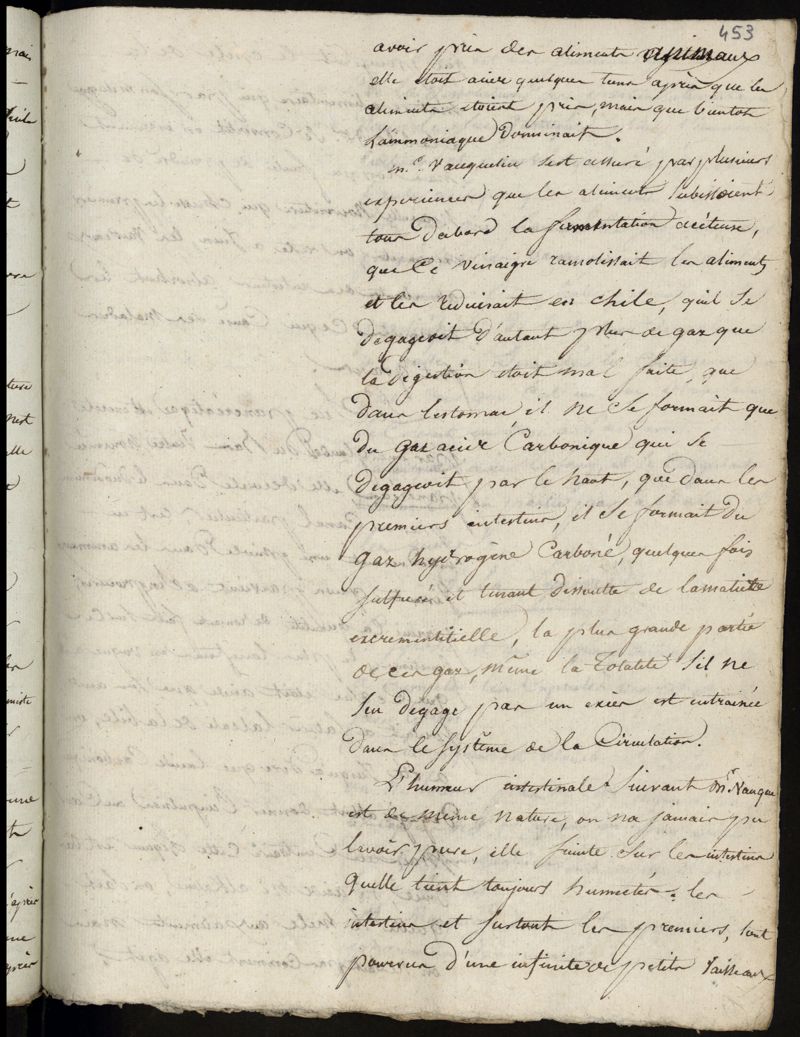 453
avoir pris des aliments animaux
elle étoit acide quelque tems après que les
aliments etoient pris, mais que bientot
L'ammoniaque Dominait.
Mr. Vauquelin s'est assuré par plusieurs
experiences que les aliments subissoient
tous d'abord la fermentation acéteuse,
que Ce vinaigre ramolissait les aliments
et les reduisait en chile, qu'il se
degageoit d'autant plus de gaz que
la digestion etoit mal faite, que
dans l'estomac il ne se formait que
du gaz acide Carbonique qui se
degageoit par le haut, que dans les
premiers intestins, il se formait du
gaz hydrogène Carboné, quelques fois
sulfuré et tenant dissoute de la matiere
excrementitielle, la plus grande partie
de ces gaz, même la totalité s'il ne
s'en degage pas un excès est entrainée
dans le système de la Circulation.
L'humeur intestinale suivant Mr. Vauque
est de même nature, on n'a jamais pu
l'avoir pure, elle suinte sur les intestins
qu'elle tient toujours humectés. les
intestins et surtout les premiers, sont
pourvus d'une infinité de petits vaisseaux